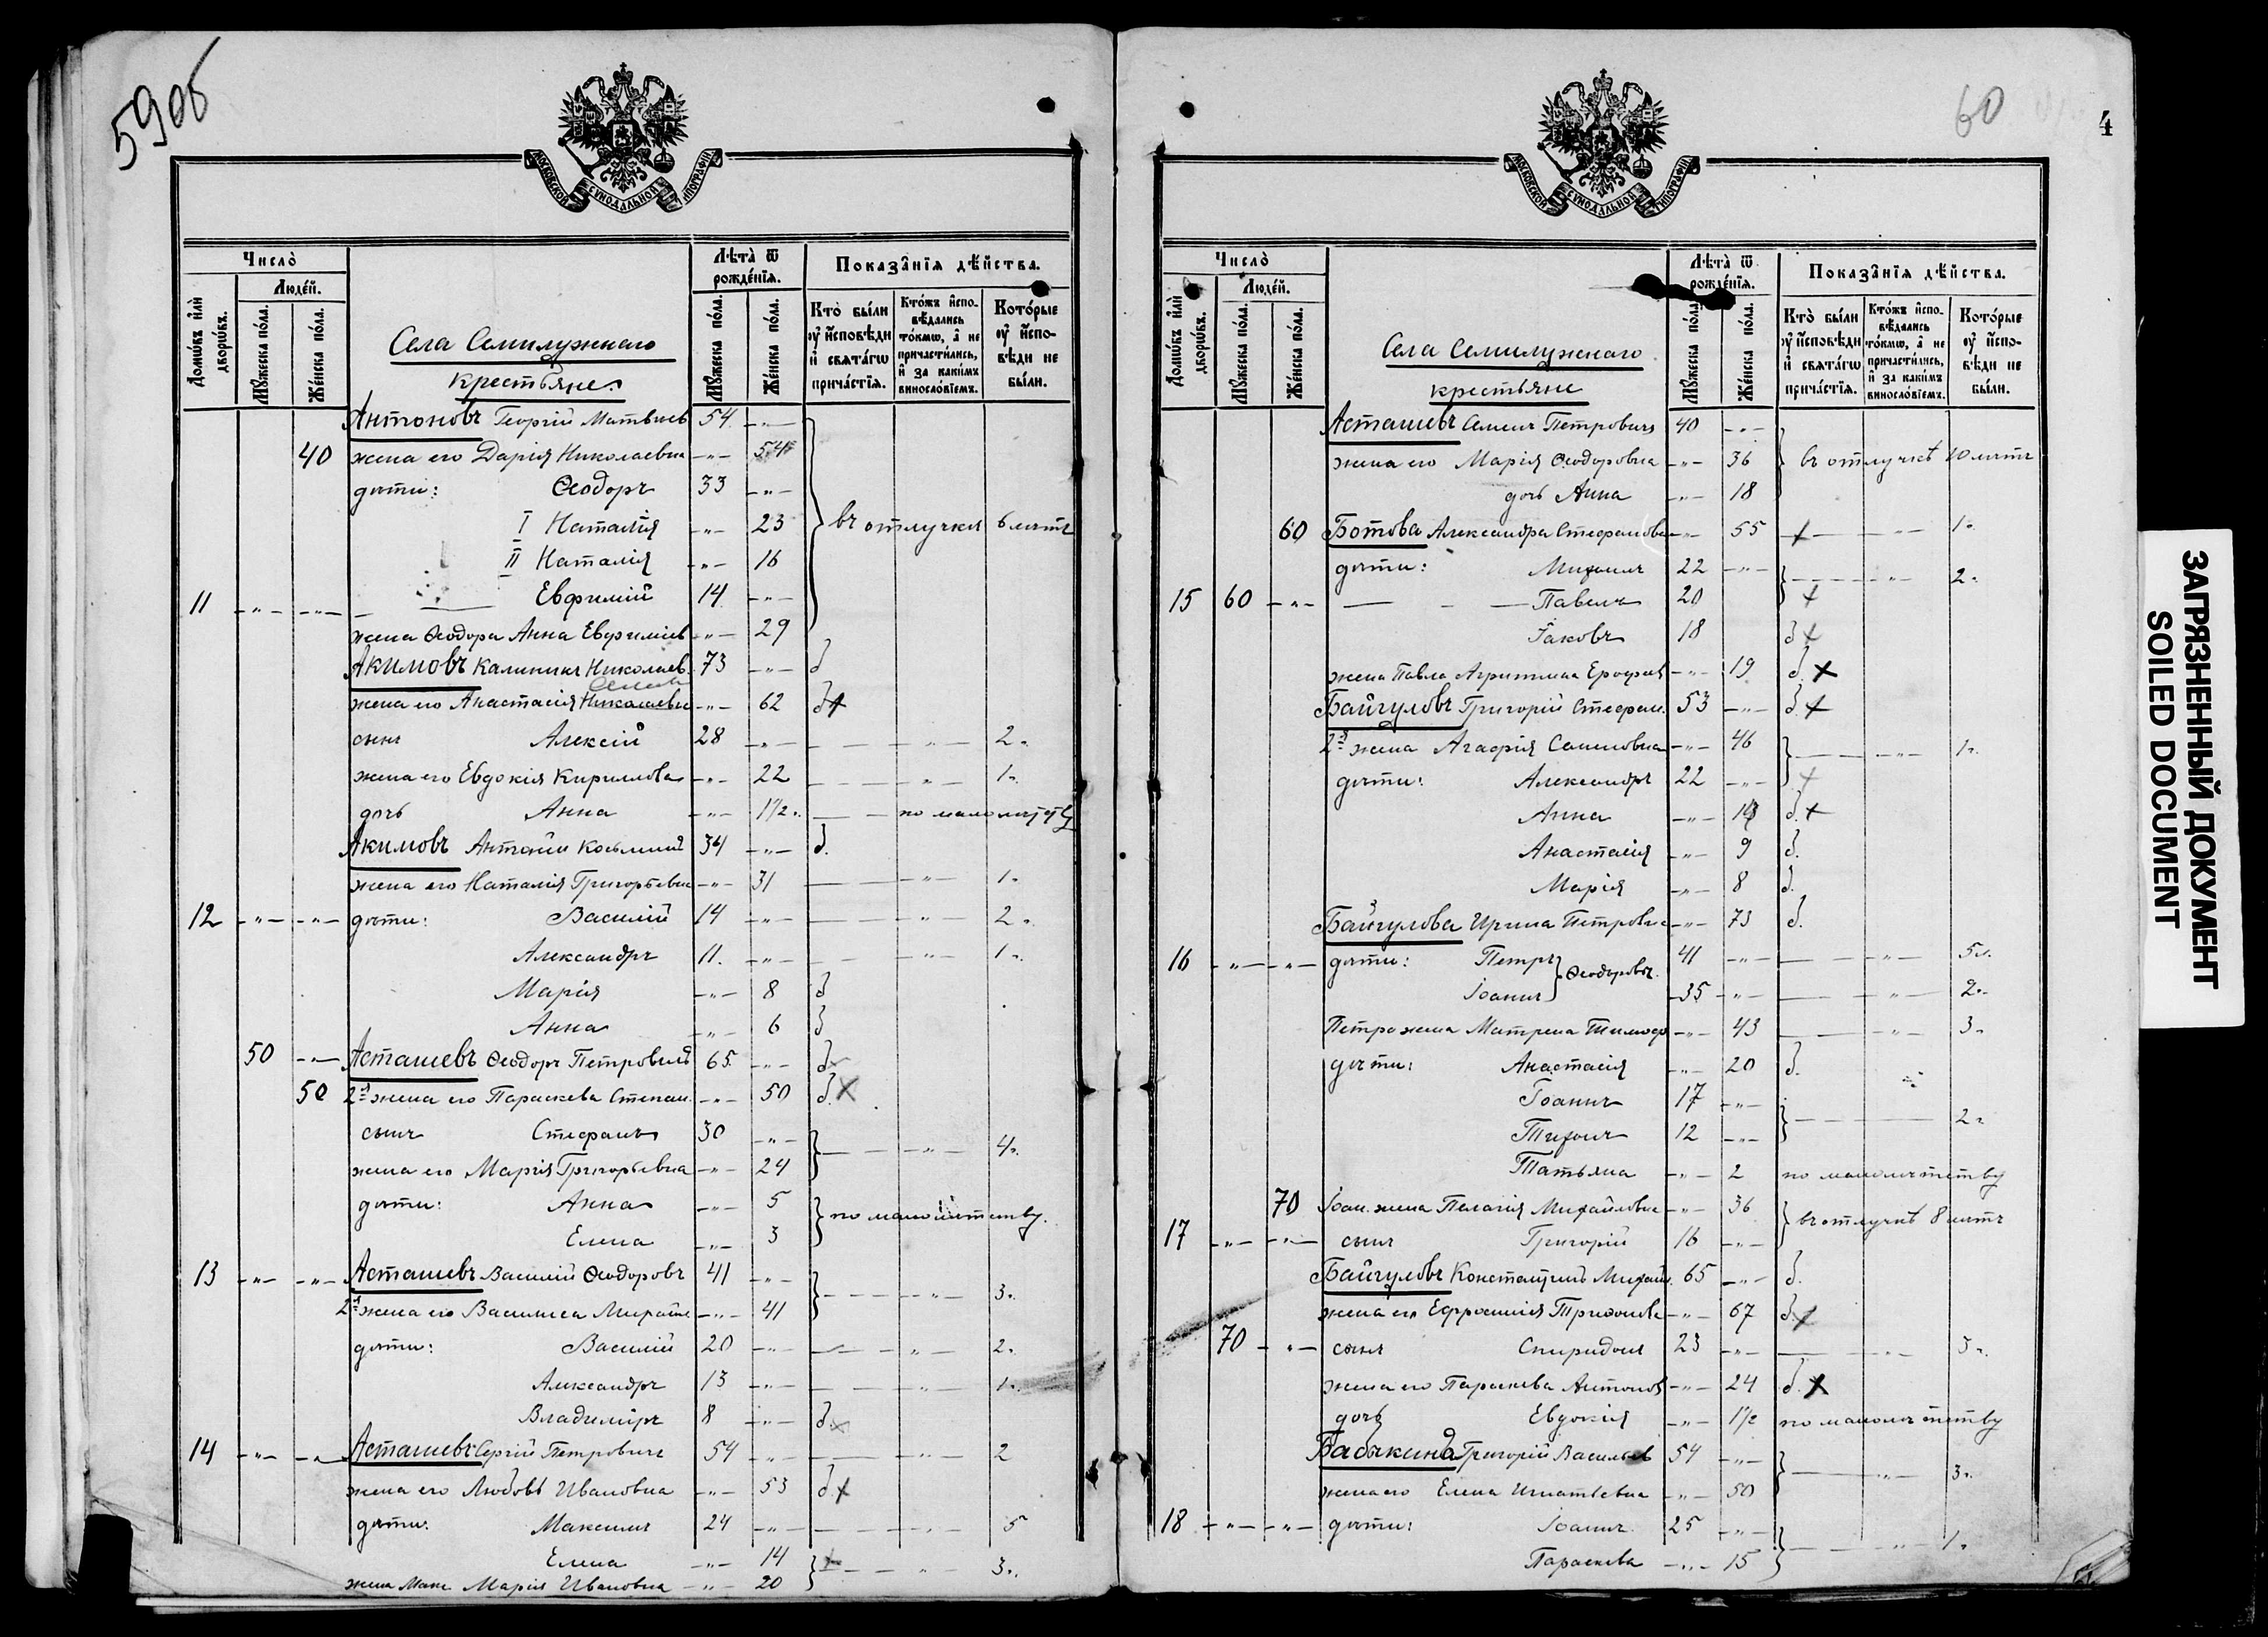 59об
МОСКОВСКОЙ СУНОДАЛЬНОЙ ТИПОГРАФІИ
Число̀
Люде́й.
Домѡ́въ и҆лѝ дворѡ́въ.
Мꙋ́жеска по́ла.
Же́нска по́ла.
Лѣ́та ѿ рожде́нїѧ.
Мꙋ́жеска по́ла.
Же́нска по́ла.
Показа̑нїѧ дѣ́йства.
Кто̀ бы́ли ᲂу҆ и҆́сповѣди и҆ свѧта́гѡ прича́стїѧ.
Кто́жъ и҆спо-
вѣ́дались
то́кмѡ, а҆ не
причасти́лись,
и҆ за каки́мъ
винносло́вїемъ.
Кото́рые
ᲂу҆ и҆́спо-
вѣди не
бы́ли.
Села Семилужнаго
крестьяне.
Антоновъ Георгій Матвѣев 54 -"-
40 жена его Дарія Николаевна -"- 54
дѣти: Ѳеодоръ 33 -"-
I Наталія -"- 23 въ отлучкѣ 6 лѣтъ
II Наталія -"- 16
11 -"- -"- Евфимій 14 -"-
жена Ѳеодора Анна Евфиміев -"- 29
Акимовъ Калинникъ Николаев. 73 -"-
жена его Анастасія Николаевна -"- 62
сынъ Алексій 28 -"- -"- 2.
жена его Евдокія Кириллова -"- 22 -"- 1.
дочь Анна -"- 1½. по малолѣтству
Акимовъ Антоній Косьминъ 34 -"-
жена его Наталія Григорьевна -"- 31 -"- 1.
12 -"- -"- дѣти: Василій 14 -"- -"- 2.
Александръ 11. -"- -"- 1.
Марія -"- 8
Анна -"- 6
50 -"- Асташевъ Ѳеодоръ Петровичъ 65. -"-
50 2-я жена его Параскева Степан. -"- 50
сынъ Стефанъ 30 -"- -"- 4.
жена его Марія Григорьевна -"- 24
дѣти: Анна -"- 5 по малолѣтству.
Елена -"- 3
13 -"- -"- Асташевъ Василій Ѳеодоровъ 41 -"- -"- 3.
2-я жена его Василиса Михайл -"- 41
дѣти: Василій 20 -"- -"- 2.
Александръ 13 -"- -"- 1.
Владиміръ 8 -"-
14 -"- -"- Асташевъ Сергій Петровичъ 54 -"- -"- 2
жена его Любовь Ивановна -"- 53
дѣти: Максимъ 24 -"- -"- 5
Елена -"- 14 -"- 3.
жена Макс Марія Ивановна -"- 20
60
4
МОСКОВСКОЙ СУНОДАЛЬНОЙ ТИПОГРАФІИ
Число̀
Люде́й.
Домѡ́въ и҆лѝ дворѡ́въ.
Мꙋ́жеска по́ла.
Же́нска по́ла.
Лѣ́та ѿ рожде́нїѧ.
Мꙋ́жеска по́ла.
Же́нска по́ла.
Показа̑нїѧ дѣ́йства.
Кто̀ бы́ли ᲂу҆ и҆́сповѣди и҆ свѧта́гѡ прича́стїѧ.
Кто́жъ и҆спо-
вѣ́дались
то́кмѡ, а҆ не
причасти́лись,
и҆ за каки́мъ
винносло́вїемъ.
Кото́рые
ᲂу҆ и҆́спо-
вѣди не
бы́ли.
Села Семилужнаго
крестьяне
Асташевъ Семенъ Петровичъ 40 -"-
жена его Марія Ѳеодоровна -"- 36 въ отлучкѣ 10 лѣтъ
дочь Анна -"- 18
60 Ботова Александра Стефановна -"- 55 -"- 1.
дѣти: Михаилъ 22 -"- -"- 2.
15 60 -"- Павелъ 20
Іаковъ 18
жена Павла Агриппина Ерофѣев -"- 19
Байгуловъ Григорій Стефан. 53 -"-
2-я жена Агафія Саввишна -"- 46 -"- 1.
дѣти: Александръ 22 -"-
Анна -"- 13
Анастасія -"- 9
Марія -"- 8
Байгулова Ирина Петровна -"- 73
16 -"- -"- дѣти: Петръ Ѳеодоровъ. 41 -"- -"- 5.
Іоаннъ 35 -"- -"- 2.
Петра жена Матрена Тимоф -"- 43 -"- 3.
дѣти: Анастасія -"- 20
Іоаннъ 17 -"- -"- 2.
Тихонъ 12 -"-
Татьяна -"- 2 по малолѣтству
70 Іоан. жена Пелагія Михайловна -"- 36 въ отлучкѣ 8 лѣтъ
17 -"- -"- сынъ Григорій 16 -"-
Байгуловъ Константинъ Михаил. 65 -"-
жена его Ефросинія Трифонова -"- 67
70 -"- сынъ Спиридонъ 23 -"- -"- 3.
жена его Параскева Антонов -"- 24
дочь Евдокія -"- 1½ по малолѣтству
Бабыкинъ Григорій Васильев 54 -"- -"- 3.
жена его Елена Игнатьевна -"- 50
18 -"- -"- дѣти: Іоаннъ 25 -"- -"- 1.
Параскева -"- 15
ЗАГРЯЗНЕННЫЙ ДОКУМЕНТ
SOILED DOCUMENT